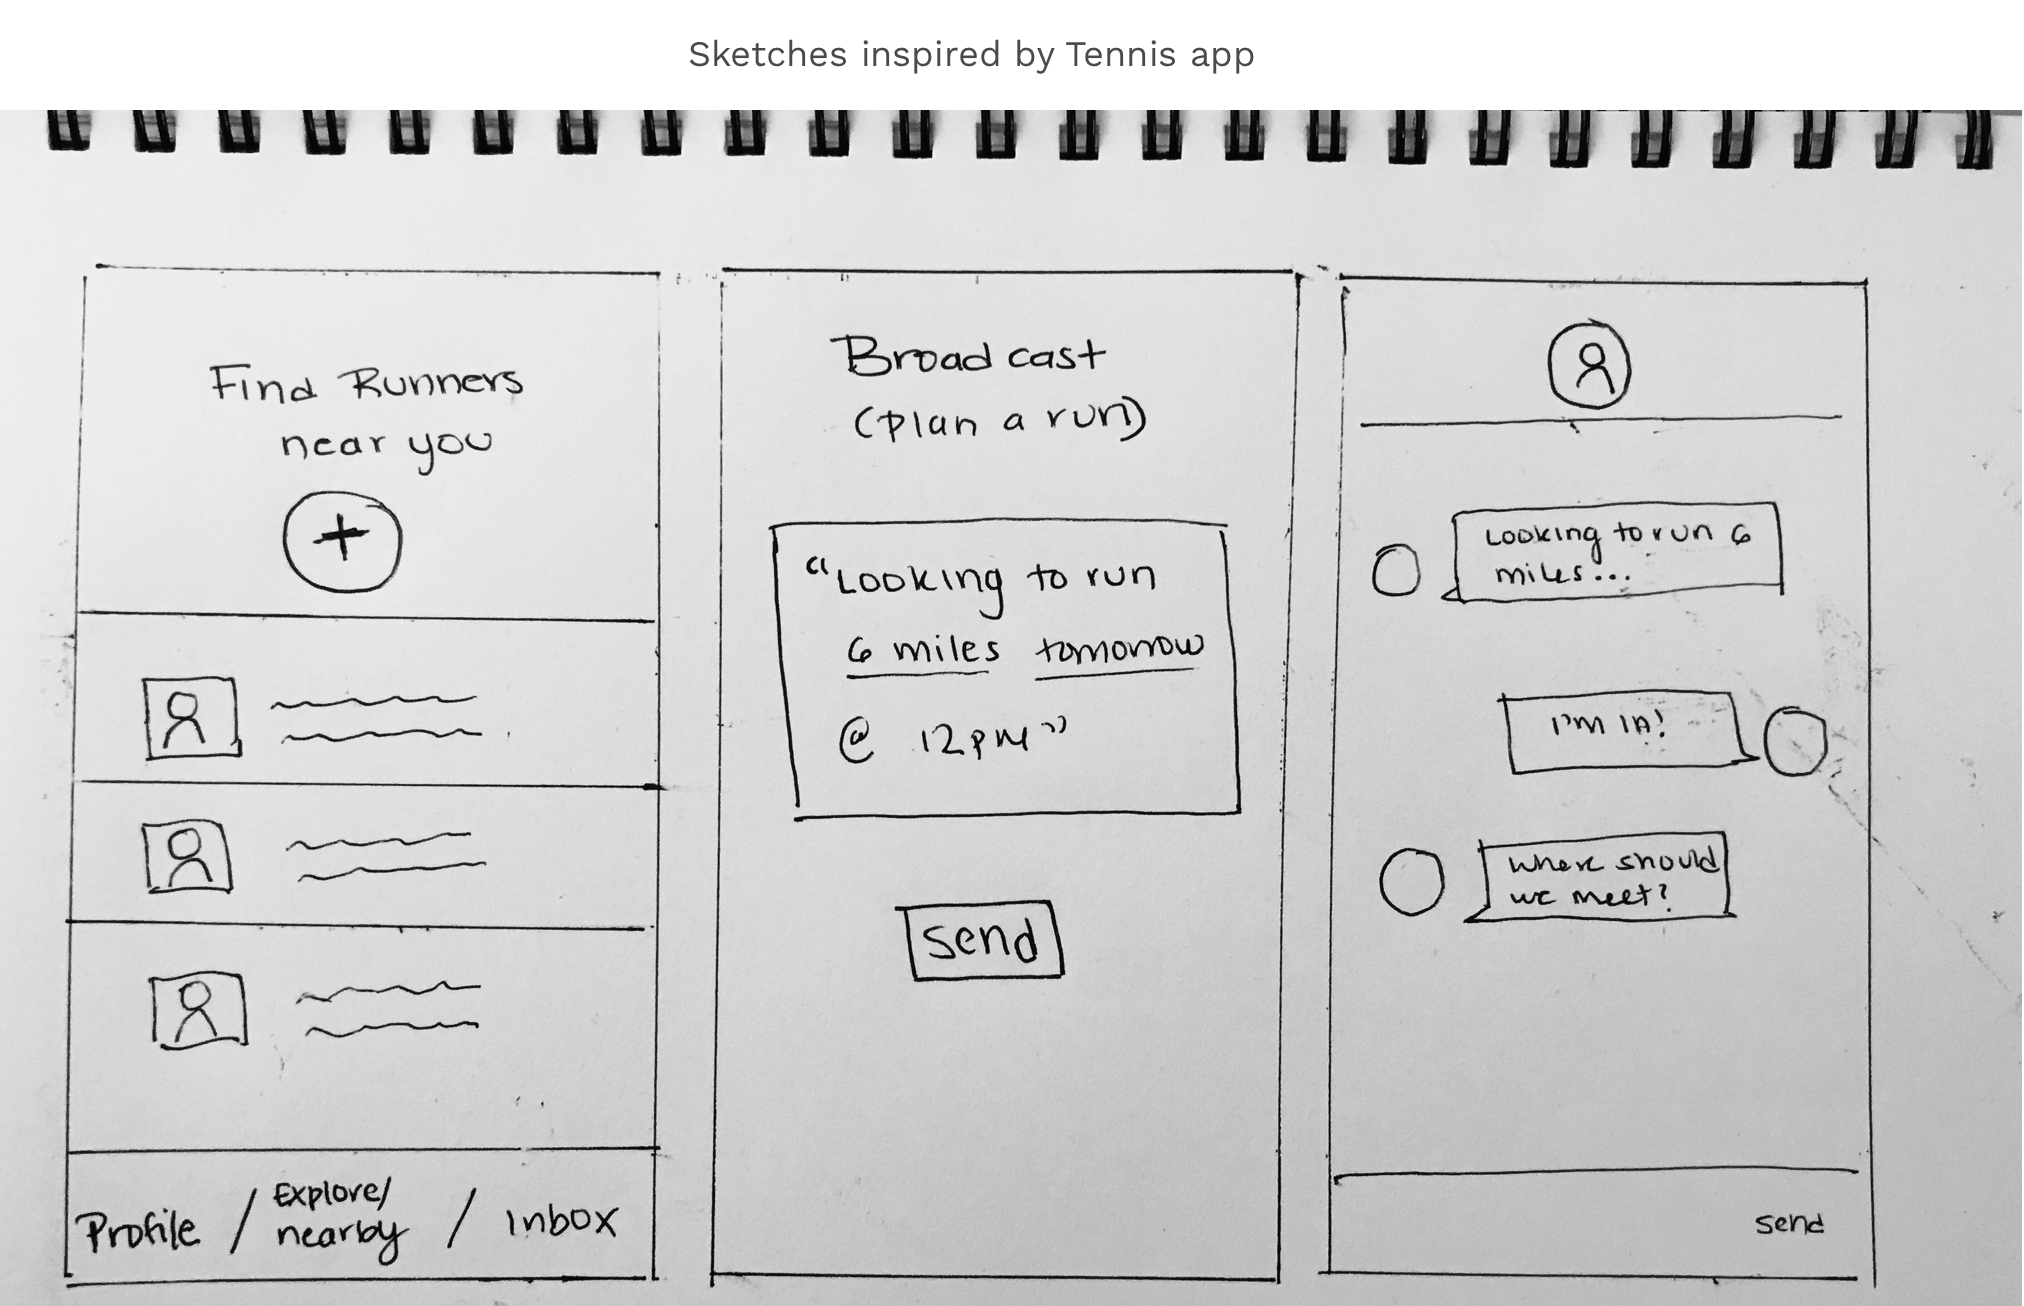 Sketches inspired by Tennis app
Find Runners
near you
+
Profile / Explore/
nearby / Inbox
Broadcast
(plan a run)
"Looking to run
6 miles tomorrow
@ 12pm"
send
Looking to run 6
miles...
I'm in!
Where should
we meet?
send